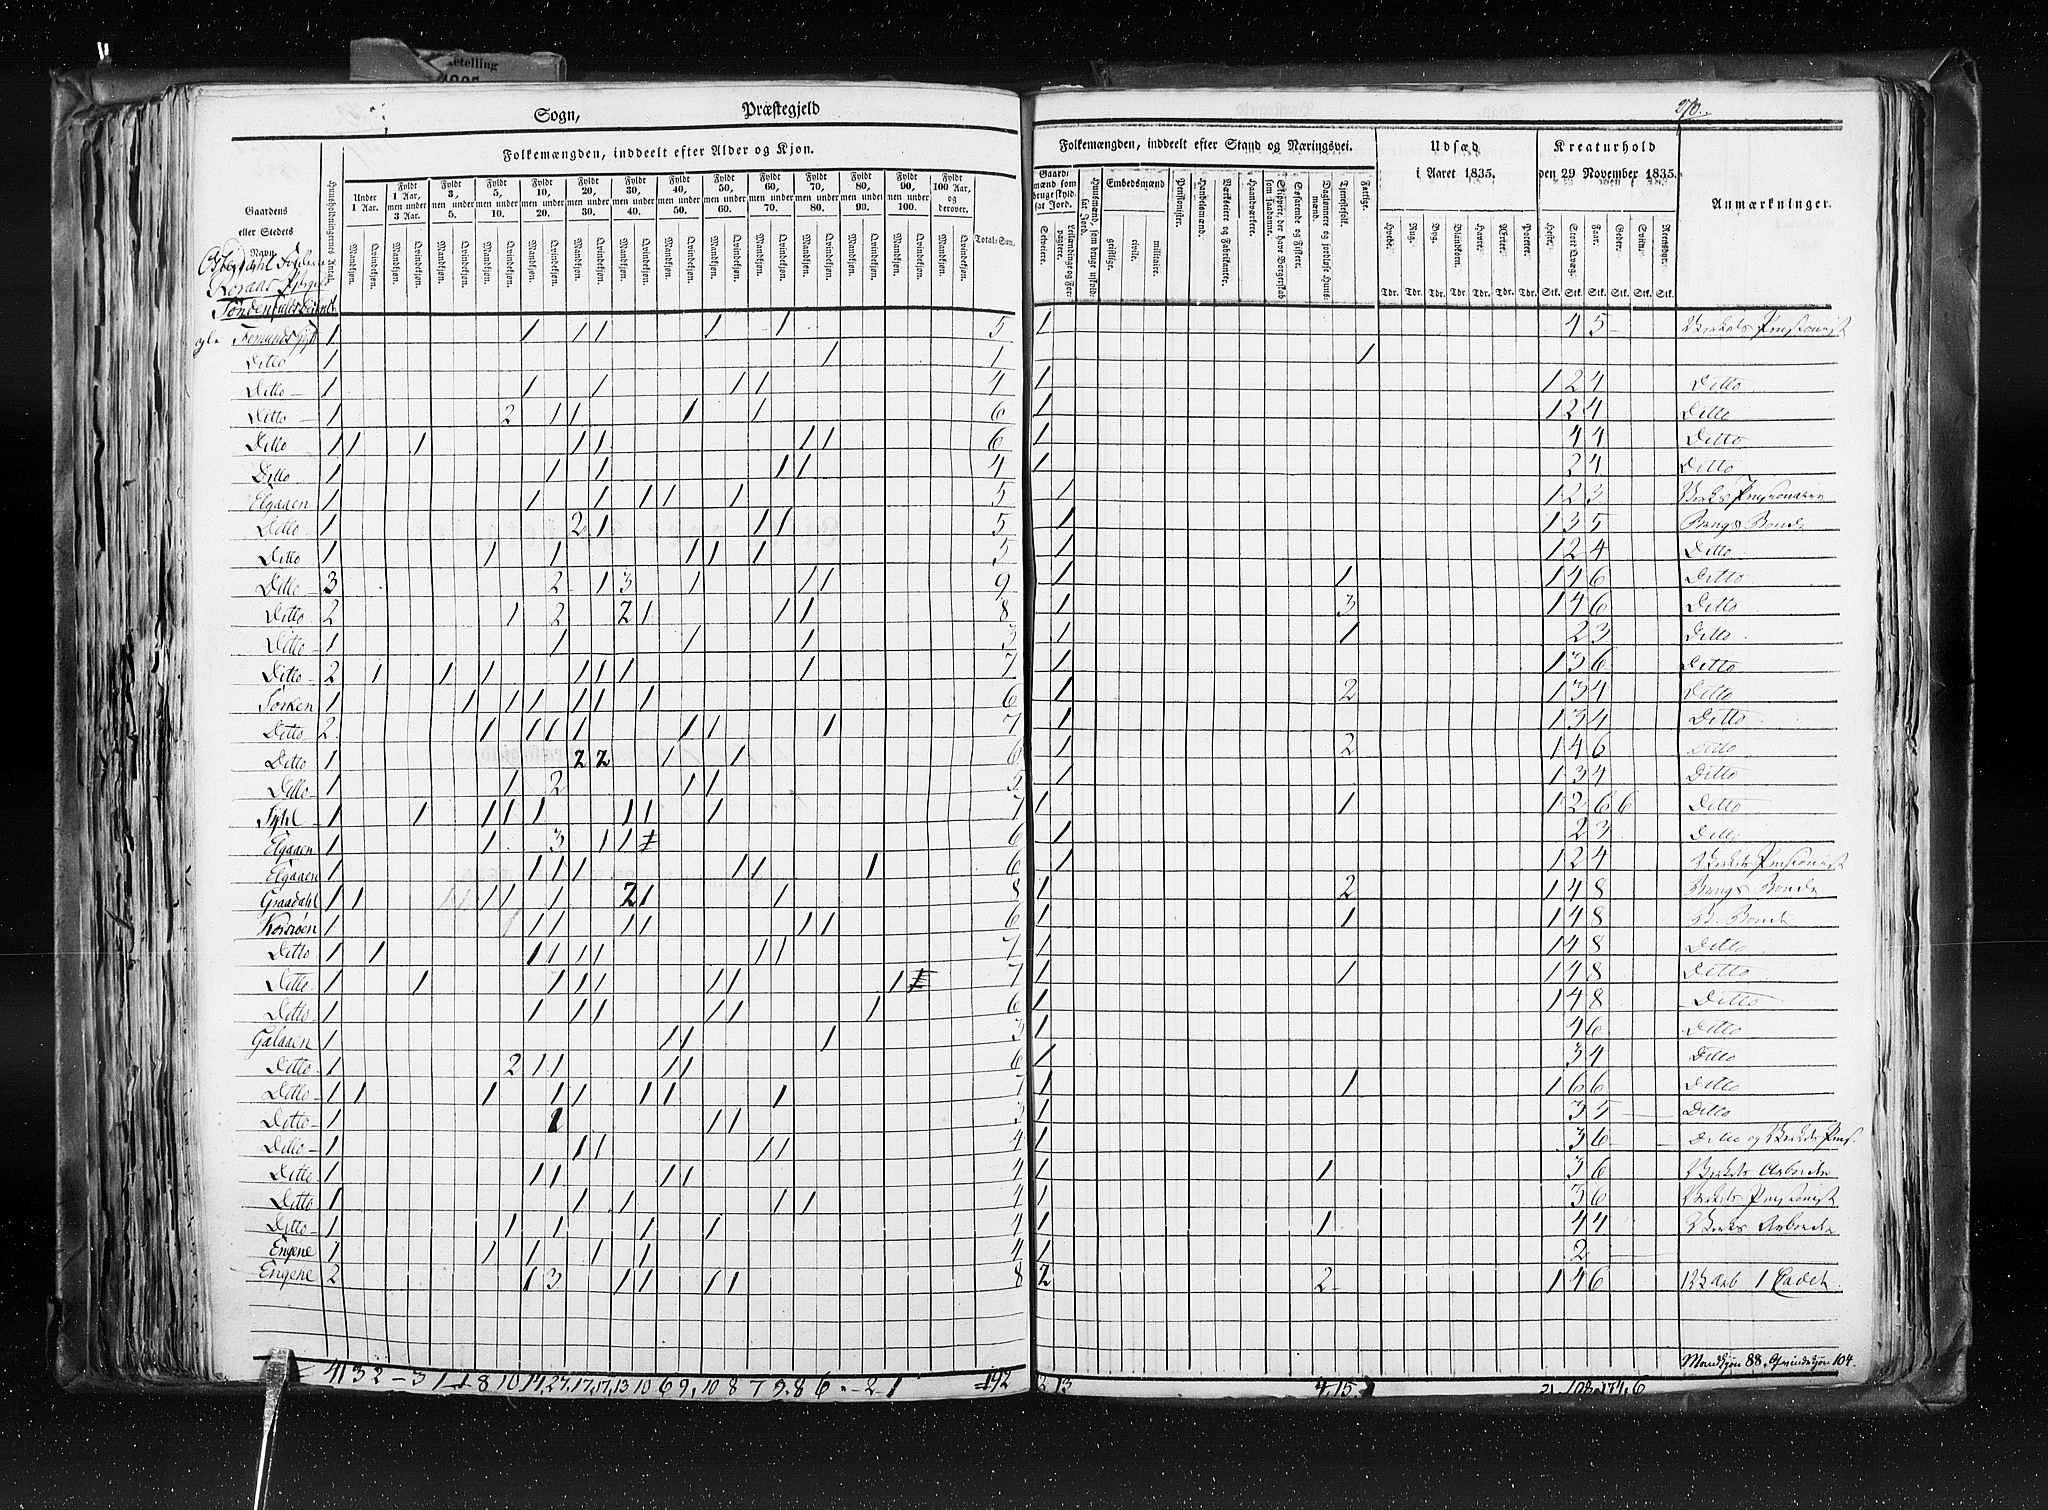 ketelling
270.
Sogn, Præstegjeld
Folkemængden, inddeelt efter Alder og Kjøn.
Folkemængden, inddeelt efter Stand og Næringsvei.
Udsæd i Aaret 1835.
Kreaturhold den 29 November 1835.
Anmærkninger.
Gaardens eller Stedets Navn.
Huusholdningernes Antal.
Under 1 Aar.
Fyldt 1 Aar, men under 3 Aar.
Fyldt 3, men under 5.
Fyldt 5, men under 10.
Fyldt 10, men under 20.
Fyldt 20, men under 30.
Fyldt 30, men under 40.
Fyldt 40, men under 50.
Fyldt 50, men under 60.
Fyldt 60, men under 70.
Fyldt 70, men under 80.
Fyldt 80, men under 90.
Fyldt 90, men under 100.
Fyldt 100 Aar, og derover.
Mandkjøn. Qvindekjøn.
Total-Sum.
Gaardmænd som bruge skyldsat Jord.
Selveiere.
Leilændinge og Forpagtere.
Huusmænd, som bruge uskyldsat Jord.
Embedsmænd
geistlige. civile. militaire.
Pensionister.
Handelsmænd.
Værkseiere og Fabrikanter.
Haandværkere.
Skippere, der have Borgerskab som saadanne.
Søfarende og Fiskere.
Daglønnere og jordløse Huusmænd.
Tjenestefolk.
Fattige.
Hvede. Rug. Byg. Blandkorn. Havre. Ærter. Poteter.
Tdr. Tdr. Tdr. Tdr. Tdr. Tdr. Tdr.
Heste. Stort Qvæg. Faar. Geder. Sviin. Rensdyr.
Stk. Stk. Stk. Stk. Stk. Stk.
Femundsgjt 1 1 1 1 1 1 5 1 4 5
Ditto 1 1 1 1
Ditto 1 1 1 1 1 4 1 1 2 4 Ditto
Ditto 1 2 1 1 1 1 6 1 1 2 4 Ditto
Ditto 1 1 1 1 1 1 1 6 1 4 4 Ditto
Ditto 1 1 1 1 1 4 1 2 4 Ditto
Elgaaen 1 1 1 1 1 1 5 1 1 2 3
Ditto 1 2 1 1 1 5 1 1 3 5 Bergs Bonde
Ditto 1 1 1 1 1 1 5 1 1 2 4 Ditto
Ditto 3 2 1 3 1 1 1 9 1 1 1 4 6 Ditto
Ditto 2 1 2 2 1 1 1 8 1 3 1 4 6 Ditto
Ditto 1 1 1 1 3 1 1 2 3 Ditto
Ditto 2 1 1 1 1 1 1 1 7 1 1 3 6 Ditto
Sorken 1 1 1 1 1 1 1 6 1 2 1 3 4 Ditto
Ditto 2 1 1 1 1 1 1 1 7 1 1 3 4 Ditto
Ditto 1 2 2 1 1 6 1 2 1 4 6 Ditto
Ditto 1 1 2 1 1 5 1 1 3 4 Ditto
Syhl 1 1 1 1 1 1 1 1 7 1 1 1 2 6 6 Ditto
Elgaaen 1 1 3 1 1 6 1 2 3 Ditto
Elgaaen 1 1 1 1 1 1 1 6 1 1 2 4
Graadahl 1 1 1 1 1 2 1 1 8 1 2 1 4 8 Bergs Bonde
Korssøen 1 1 1 1 1 1 1 6 1 1 1 4 8 B. Bonde
Ditto 1 1 1 1 1 1 1 1 7 1 1 4 8 Ditto
Ditto 1 1 1 1 1 1 1 1 7 1 1 1 4 8 Ditto
Ditto 1 1 1 1 1 1 1 6 1 1 4 8 Ditto
Galaaen 1 1 1 1 3 1 4 6 Ditto
Ditto 1 2 1 1 1 1 6 1 3 4 Ditto
Ditto 1 1 1 1 1 1 1 1 7 1 1 1 6 6 Ditto
Ditto 1 1 1 1 3 1 3 5 Ditto
Ditto 1 1 1 1 1 4 1 3 6
Ditto 1 1 1 1 1 4 1 1 3 6
Ditto 1 1 1 1 1 4 1 3 6
Ditto 1 1 1 1 1 4 1 1 4 4
Engene 1 1 1 1 1 4 1 2
Engene 2 1 3 1 1 1 1 8 2 2 1 4 6 1 Cadet
Mandkjøn 88, Qvindekjøn 104.
41 3 2 – 3 1 1 8 10 14 27 17 17 13 10 6 9 10 8 7 9 8 6 – 2 1 192 13 4 15 1 21 108 174 6